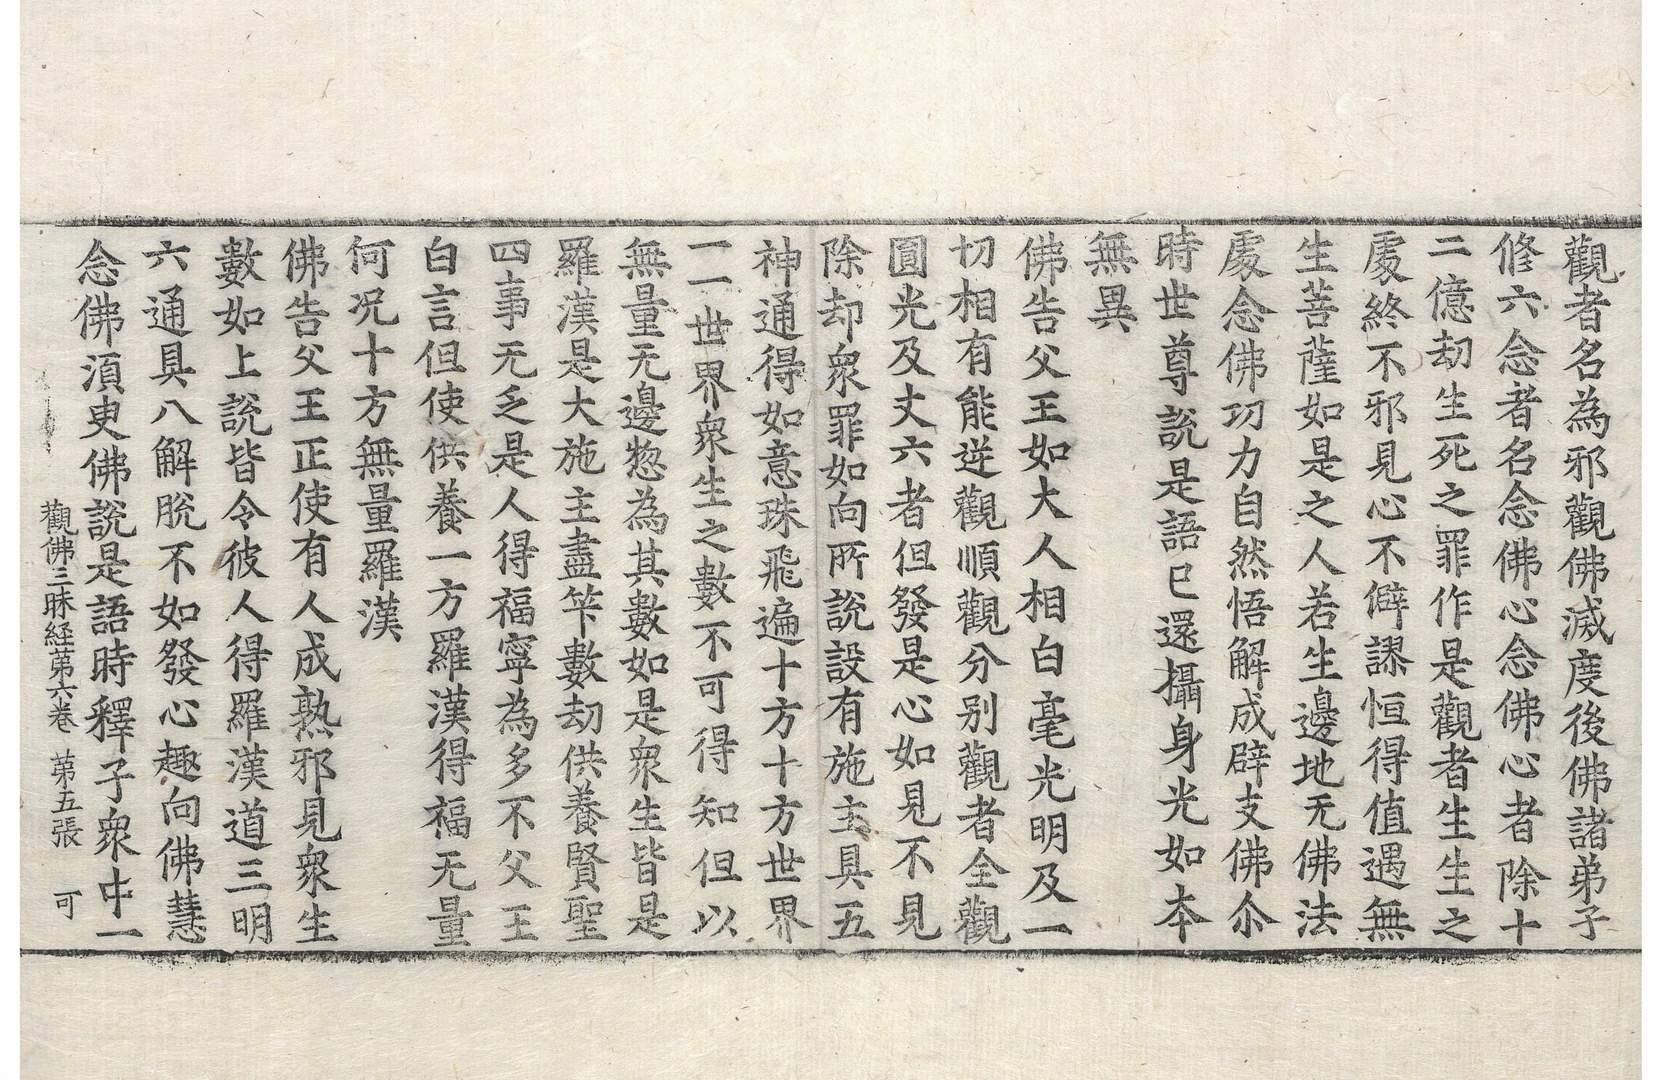 觀者名為邪觀佛滅度後佛諸弟子
修六念者名念佛心念佛心者除十
二億劫生死之罪作是觀者生生之
處終不邪見心不僻謬恒得值遇無
生菩薩如是之人若生邊地无佛法
處念佛功力自然悟解成辟支佛尒
時世尊說是語已還攝身光如本
無異
佛告父王如大人相白毫光明及一
切相有能逆觀順觀分別觀者全觀
圓光及丈六者但發是心如見不見
除却衆罪如向所說設有施主具五
神通得如意珠飛遍十方十方世界
一一世界衆生之數不可得知但以
無量无邊惣為其數如是衆生皆是
羅漢是大施主盡笇數劫供養賢聖
四事无乏是人得福寧為多不父王
白言但使供養一方羅漢得福无量
何況十方無量羅漢
佛告父王正使有人成熟邪見衆生
數如上說皆令彼人得羅漢道三明
六通具八解脫不如發心趣向佛慧
念佛須臾佛說是語時釋子衆中一
觀佛三昧経苐六卷 苐五張 可